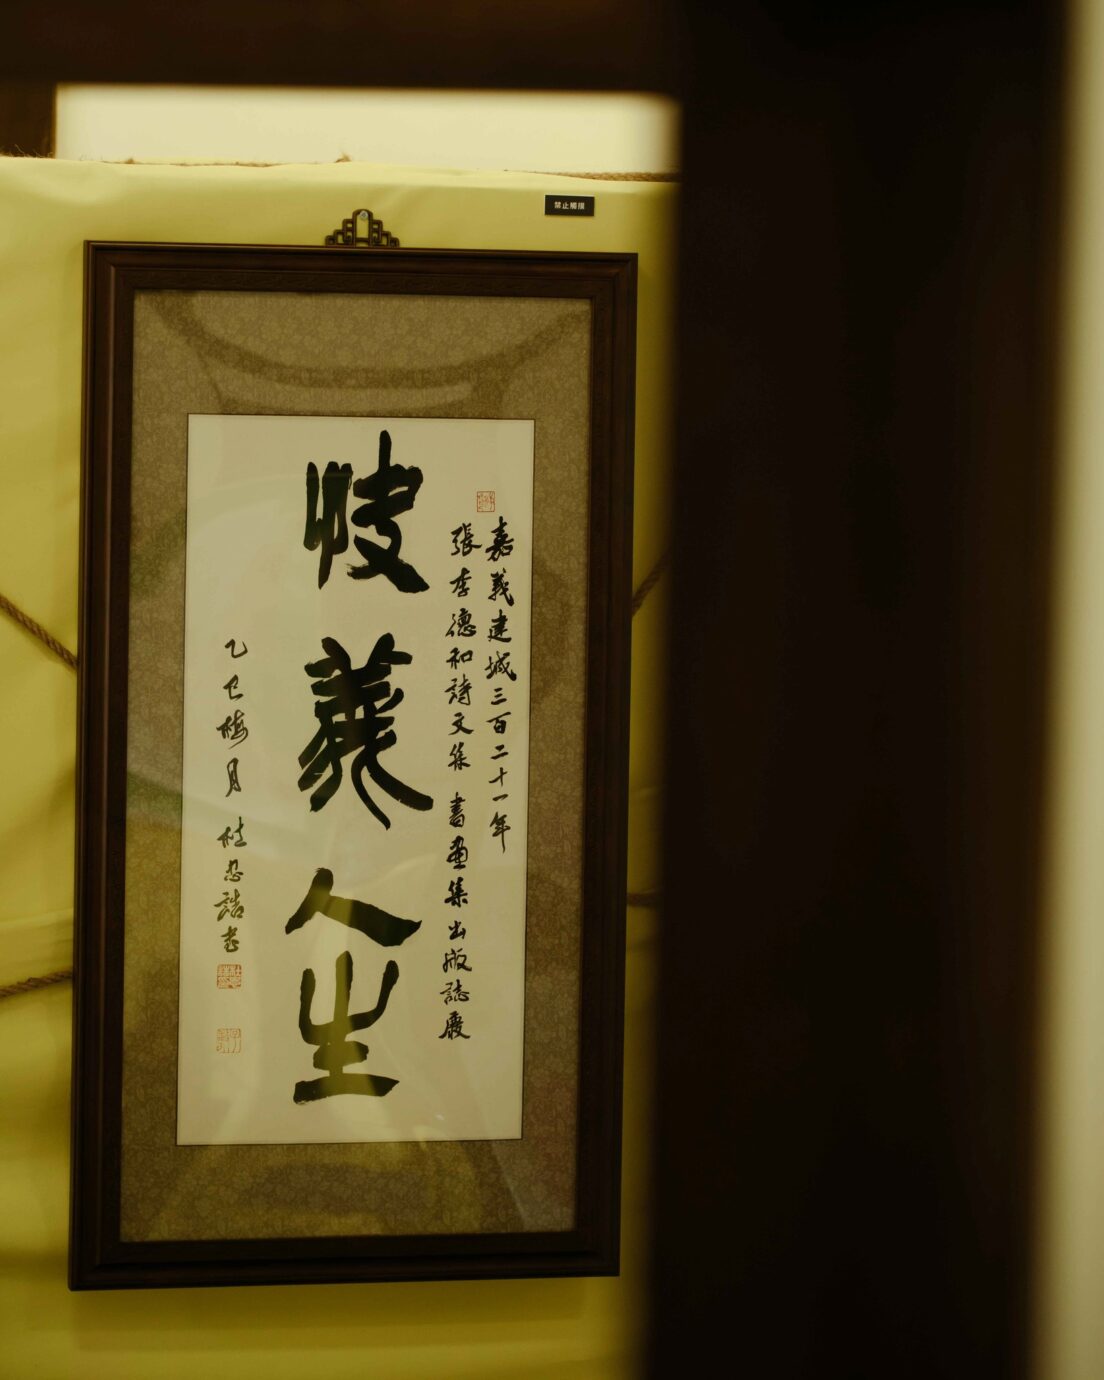 禁止觸摸
嘉義建城三百二十一年
張李德和詩文集 書畫集出版誌慶
義人生
乙巳梅月 杜忠誥書